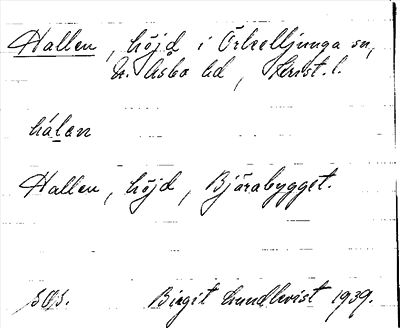 Hallen, höjd i Örkelljunga sn,
N. Åsbo hd, Krist. l.
hálen
Hallen, höjd, Bjärabygget.
Birgit Lundkvist 1939.